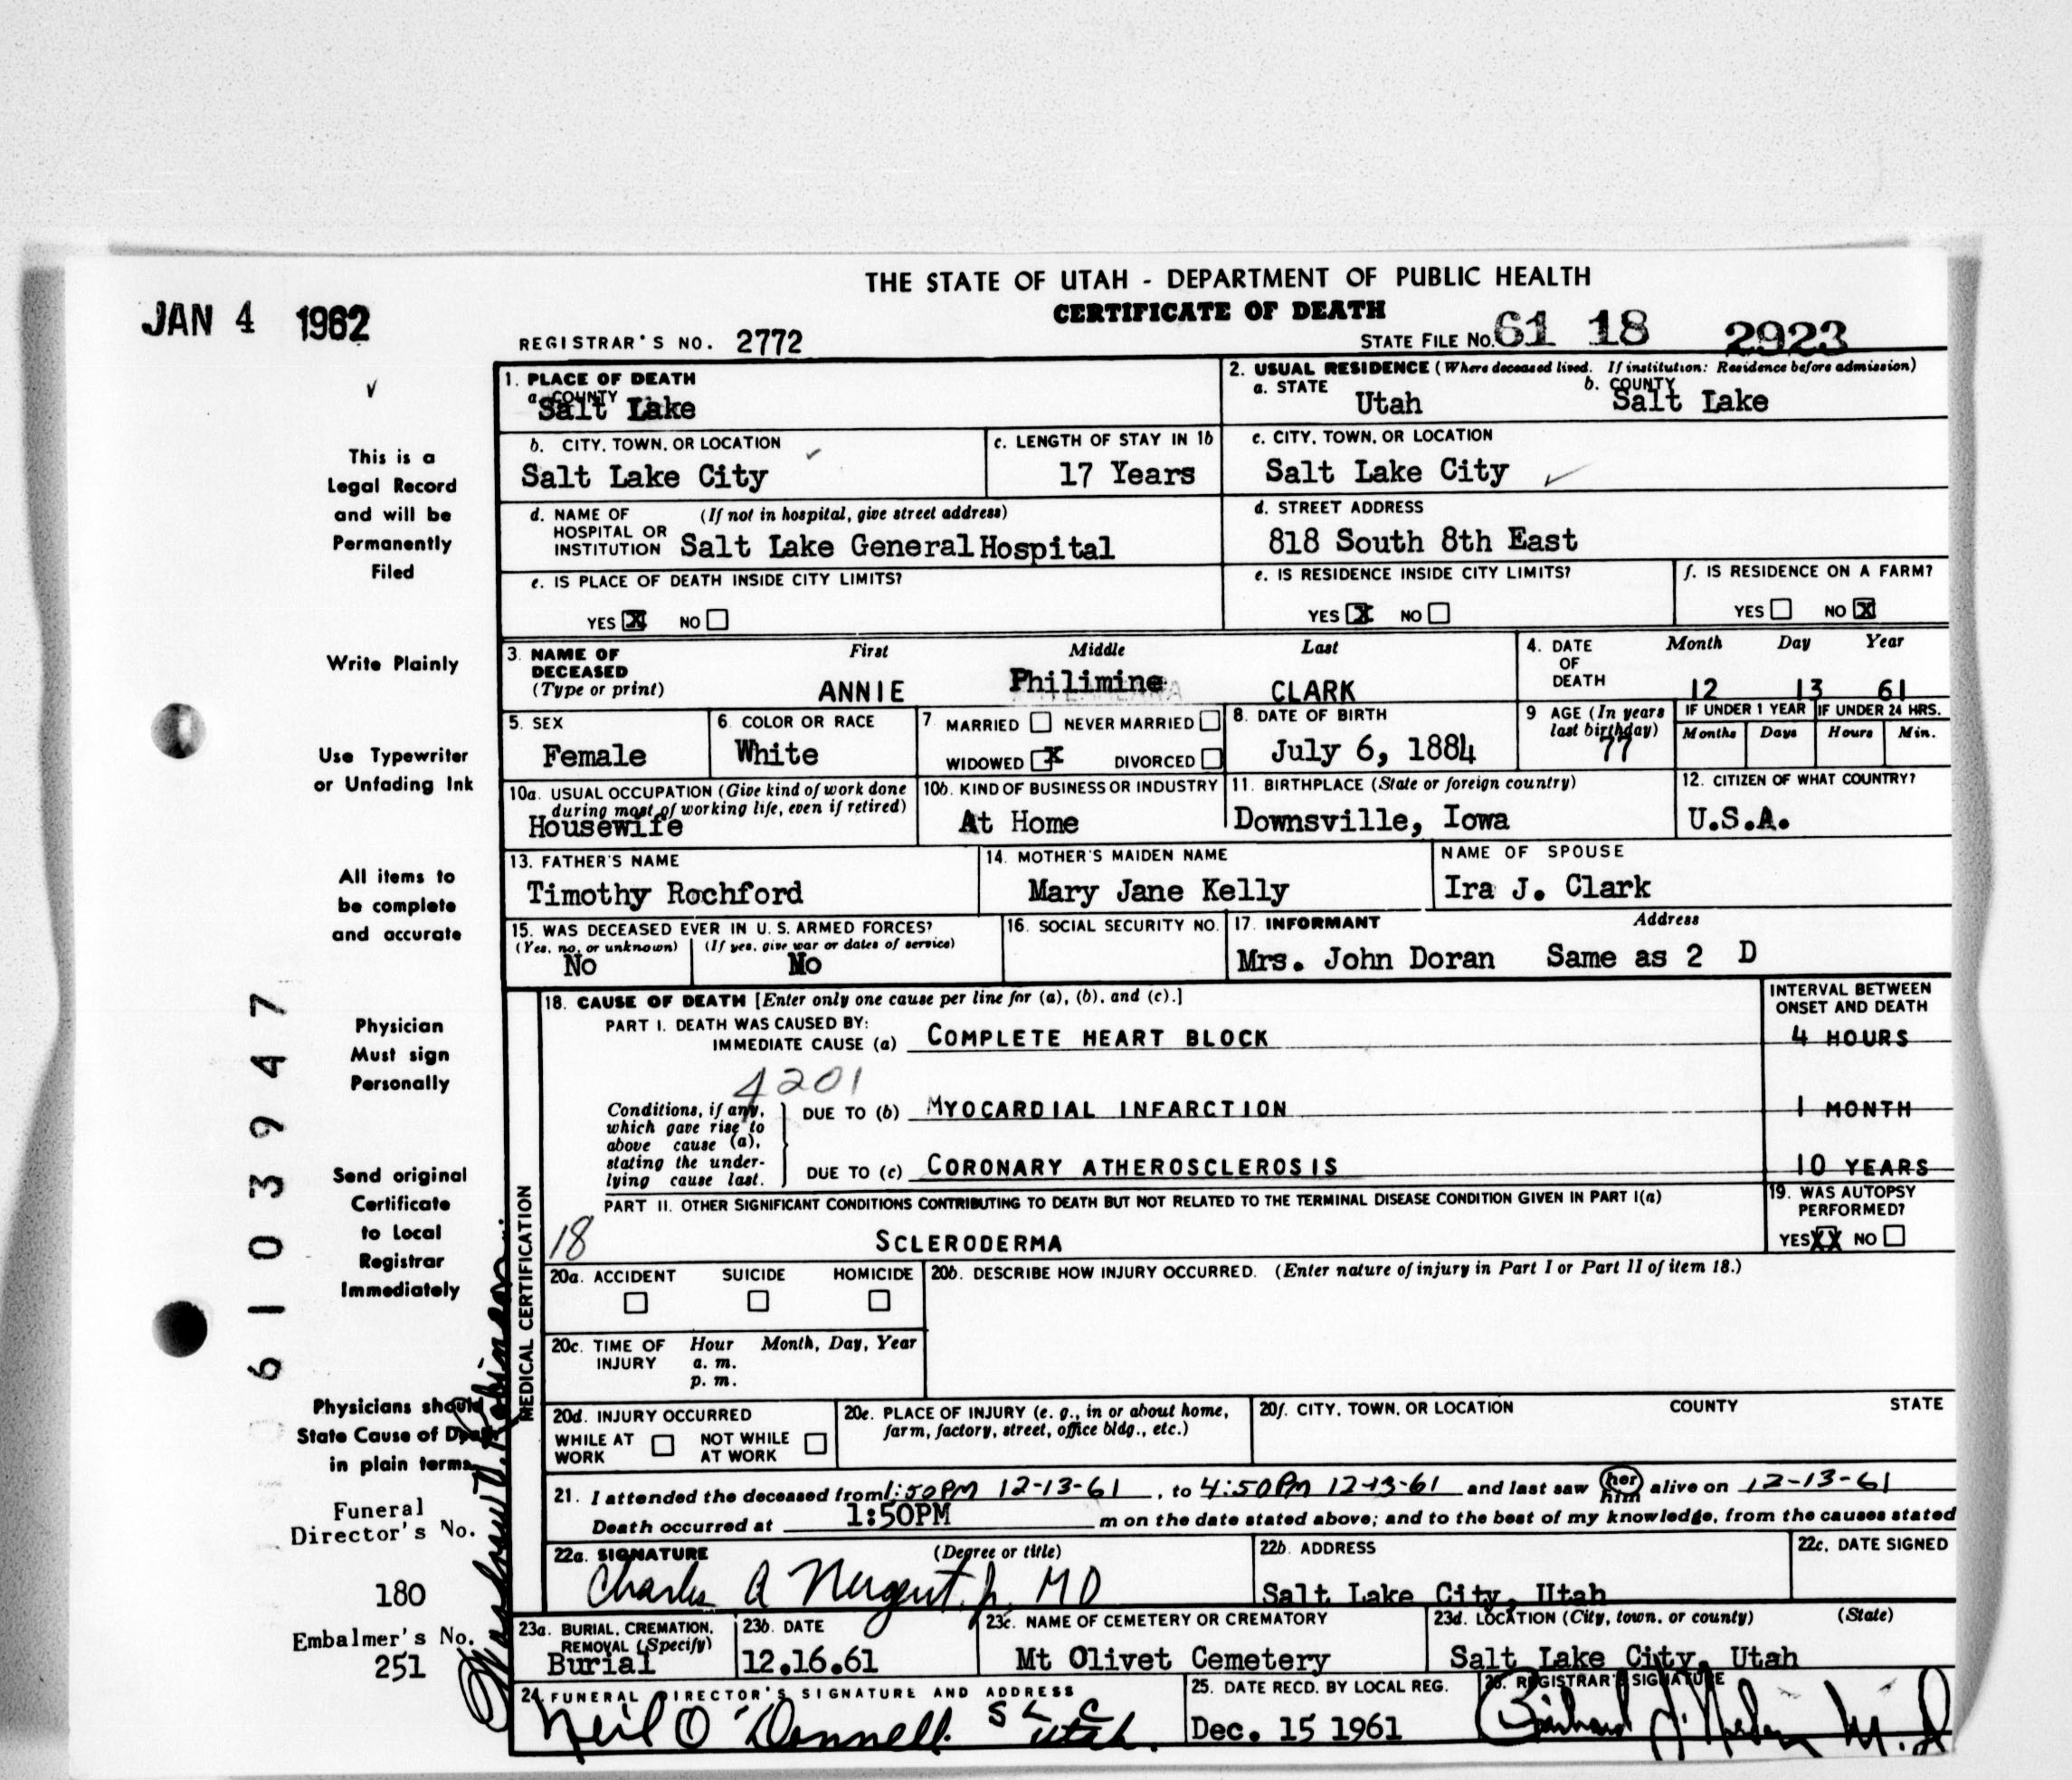 THE STATE OF UTAH - DEPARTMENT OF PUBLIC HEALTH
JAN 4 1962
CERTIFICATE OF DEATH
REGISTRAR'S NO. 2772
STATE FILE NO. 61 18 2923
1. PLACE OF DEATH
a. COUNTY
Salt Lake
2. USUAL RESIDENCE (Where deceased lived. If institution: Residence before admission)
a. STATE Utah
b. COUNTY Salt Lake
b. CITY, TOWN, OR LOCATION
Salt Lake City
c. LENGTH OF STAY IN 1b
17 Years
c. CITY, TOWN, OR LOCATION
Salt Lake City
d. NAME OF HOSPITAL OR INSTITUTION (If not in hospital, give street address)
Salt Lake General Hospital
d. STREET ADDRESS
818 South 8th East
e. IS PLACE OF DEATH INSIDE CITY LIMITS?
YES X NO
e. IS RESIDENCE INSIDE CITY LIMITS?
YES X NO
f. IS RESIDENCE ON A FARM?
YES NO X
3. NAME OF DECEASED (Type or print)
First Middle Last
ANNIE Philimine CLARK
4. DATE OF DEATH
Month Day Year
12 13 61
5. SEX
Female
6. COLOR OR RACE
White
7. MARRIED NEVER MARRIED
WIDOWED X DIVORCED
8. DATE OF BIRTH
July 6, 1884
9 AGE (In years last birthday)
77
IF UNDER 1 YEAR
Months Days
IF UNDER 24 HRS.
Hours Min.
10a. USUAL OCCUPATION (Give kind of work done during most of working life, even if retired)
Housewife
10b. KIND OF BUSINESS OR INDUSTRY
At Home
11. BIRTHPLACE (State or foreign country)
Downsville, Iowa
12. CITIZEN OF WHAT COUNTRY?
U.S.A.
13. FATHER'S NAME
Timothy Rochford
14. MOTHER'S MAIDEN NAME
Mary Jane Kelly
NAME OF SPOUSE
Ira J. Clark
15. WAS DECEASED EVER IN U. S. ARMED FORCES?
(Yes, no, or unknown) (If yes, give war or dates of service)
No No
16. SOCIAL SECURITY NO.
17. INFORMANT Address
Mrs. John Doran Same as 2 D
MEDICAL CERTIFICATION
18. CAUSE OF DEATH [Enter only one cause per line for (a), (b), and (c).]
INTERVAL BETWEEN ONSET AND DEATH
PART I. DEATH WAS CAUSED BY:
IMMEDIATE CAUSE (a) COMPLETE HEART BLOCK 4 HOURS
4201
Conditions, if any, which gave rise to above cause (a), stating the underlying cause last.
DUE TO (b) MYOCARDIAL INFARCTION 1 MONTH
DUE TO (c) CORONARY ATHEROSCLEROSIS 10 YEARS
PART II. OTHER SIGNIFICANT CONDITIONS CONTRIBUTING TO DEATH BUT NOT RELATED TO THE TERMINAL DISEASE CONDITION GIVEN IN PART I(a)
18
SCLERODERMA
19. WAS AUTOPSY PERFORMED?
YES XX NO
20a. ACCIDENT SUICIDE HOMICIDE
20b. DESCRIBE HOW INJURY OCCURRED. (Enter nature of injury in Part I or Part II of item 18.)
20c. TIME OF INJURY Hour Month, Day, Year
a. m.
p. m.
20d. INJURY OCCURRED
WHILE AT WORK NOT WHILE AT WORK
20e. PLACE OF INJURY (e. g., in or about home, farm, factory, street, office bldg., etc.)
20f. CITY, TOWN, OR LOCATION COUNTY STATE
21. I attended the deceased from 1:50PM 12-13-61, to 4:50PM 12-13-61 and last saw her him alive on 12-13-61
Death occurred at 1:50PM m on the date stated above; and to the best of my knowledge, from the causes stated
22a. SIGNATURE (Degree or title)
Charles A Nugent Jr MD
22b. ADDRESS
Salt Lake City, Utah
22c. DATE SIGNED
23a. BURIAL, CREMATION, REMOVAL (Specify)
Burial
23b. DATE
12.16.61
23c. NAME OF CEMETERY OR CREMATORY
Mt Olivet Cemetery
23d. LOCATION (City, town, or county) (State)
Salt Lake City, Utah
24. FUNERAL DIRECTOR'S SIGNATURE AND ADDRESS
Neil O'Donnell S L C Utah.
25. DATE RECD. BY LOCAL REG.
Dec. 15 1961
26. REGISTRAR'S SIGNATURE
M.D
This is a
Legal Record
and will be
Permanently
Filed
Write Plainly
Use Typewriter
or Unfading Ink
All items to
be complete
and accurate
Physician
Must sign
Personally
Send original
Certificate
to Local
Registrar
Immediately
Physicians should
State Cause of Death
in plain terms
Funeral
Director's No.
180
Embalmer's No.
251
6103947